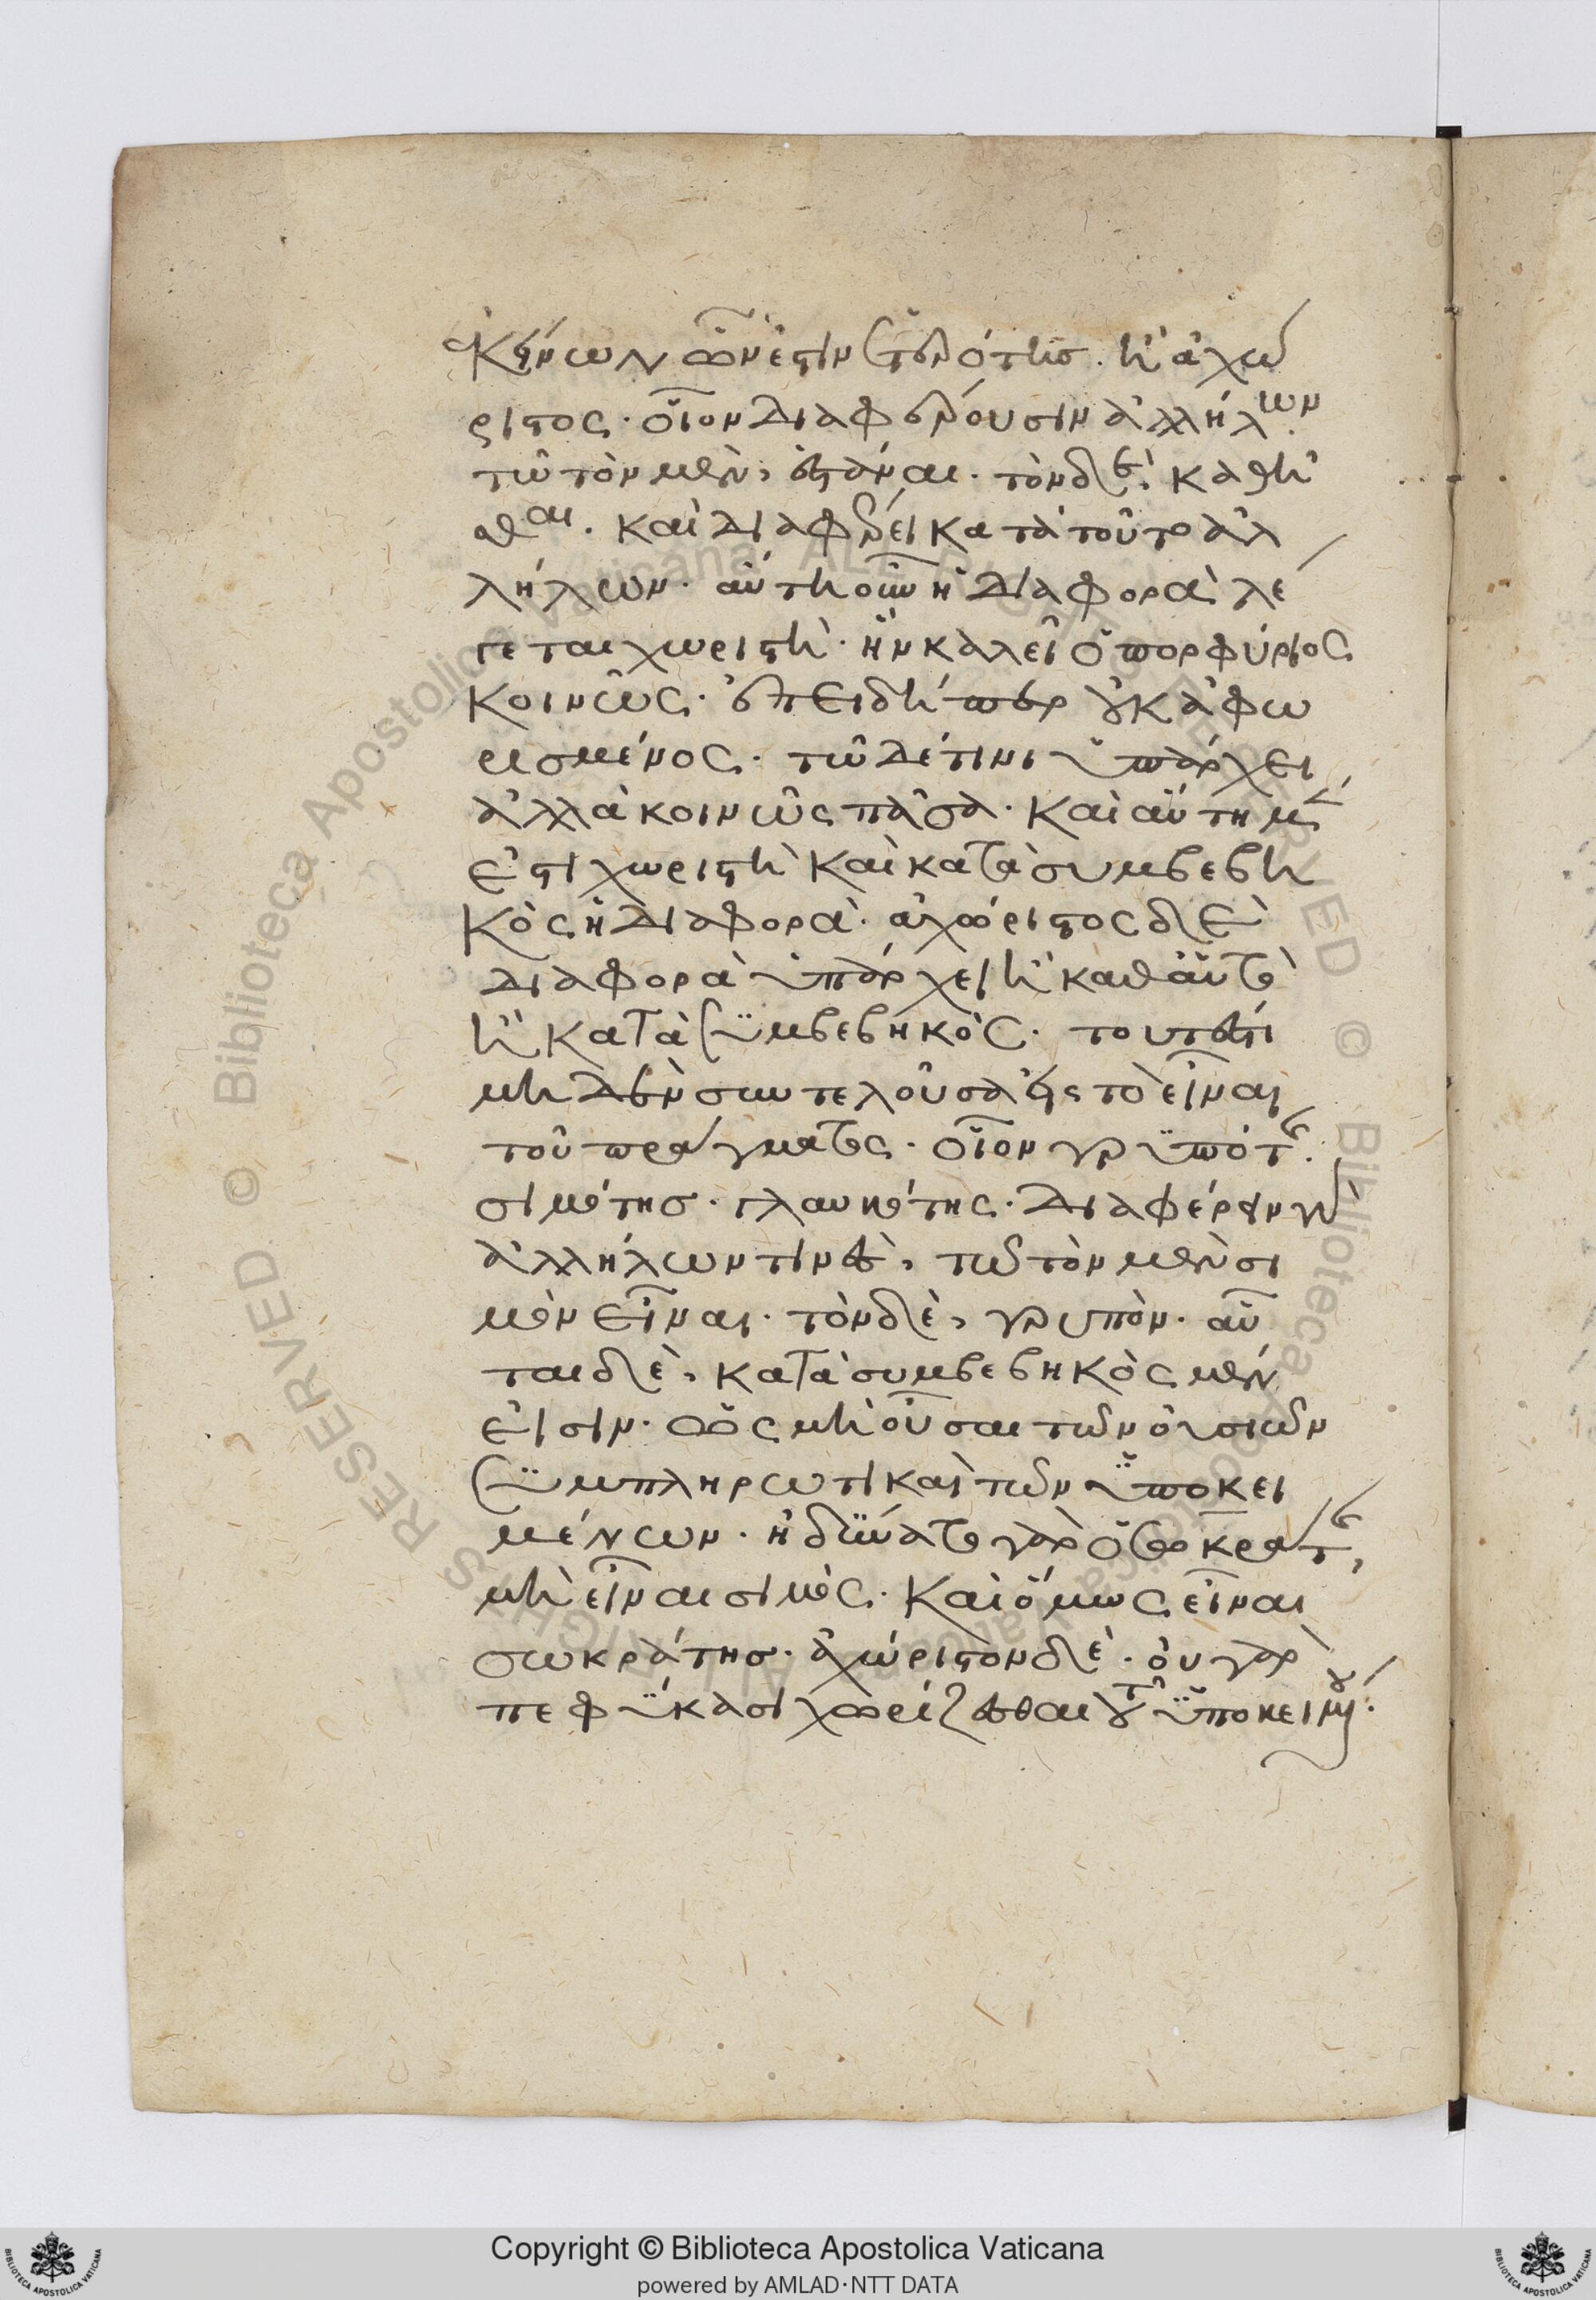 ἐκείνων ὧν ἐστὶν ἑτερότης. ἡ ἀχώ
ριστος. οἷον διαφέρουσιν ἀλλήλων
τῶ τὸν μὲν, ἑστάναι. τὸν δὲ, καθῆ
σθαι. καὶ διαφέρει κατὰ τοῦτο ἀλ
λήλων. αὕτη οὖν ἡ διαφορὰ λέ
γεται χωριστὴ. ἣν καλεῖ ὁ πορφύριος
κοινῶς. ἐπειδήπερ οὐκ ἀφω
ρισμένος. τῶδέ τινι ὑπάρχει,
ἀλλὰ κοινῶς πᾶσα. καὶ αὕτη μὲν
ἐστὶ χωριστὴ καὶ κατὰ συμβεβη
κὸς ἡ διαφορὰ. ἀχώριστος δὲ
διαφορὰ ὑπάρχει ἢ καθ αὑτὸ
ἢ κατὰ συμβεβηκὸς. τουτέστι
μηδὲν συντελοῦσα εἰς τὸ εἶναι
τοῦ πράγματος. οἷον γρυπότης.
σιμότησ. γλαυκότης. διαφέρουν γὰρ
ἀλλήλων τινὲς, τῶ τὸν μὲν σι
μὸν εἶναι. τὸν δὲ, γρυπὸν. αὗ
ται δὲ, κατὰ συμβεβηκὸς μέν
εἰσιν. ὡς μὴ οὖσαι τῶν οὐσιῶν
συμπληρωτικαὶ τῶν ὑποκει
μένων. ἠδύνατο γὰρ ὁ σωκράτης,
μὴ εἶναι σιμὸς. καὶ ὅμως εἶναι
σωκράτησ. ἀχώριστον δὲ. οὐ γὰρ
πεφύκασι χωρίζεσθαι τοῦ ὑποκειμένου.